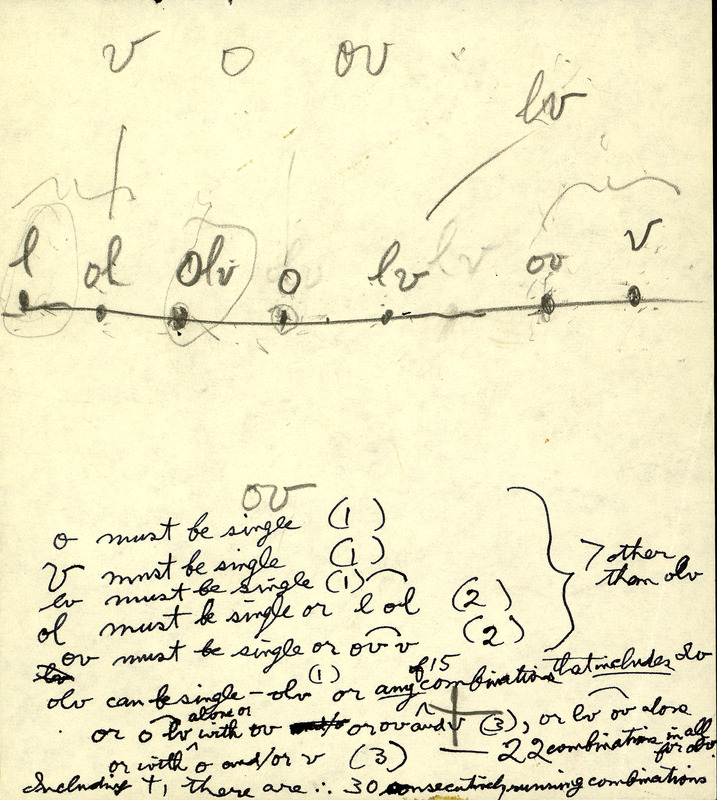 v o ov
lv
l ol olv o lv ov v
ov
o must be single (1)
v must be single (1)
lv must be single (1)
ol must be single or l ol (2)
ov must be single or ov v (2)
7 other
than olv
olv can be single - olv (1) or any of 15 combinations that includes olv
or o lv alone or with ov or ov and v (3), or lv ov alone
or with o and/or v (3) — 22 combinations in all for olv
Including †, there are ∴ 30 consecutively running combinations